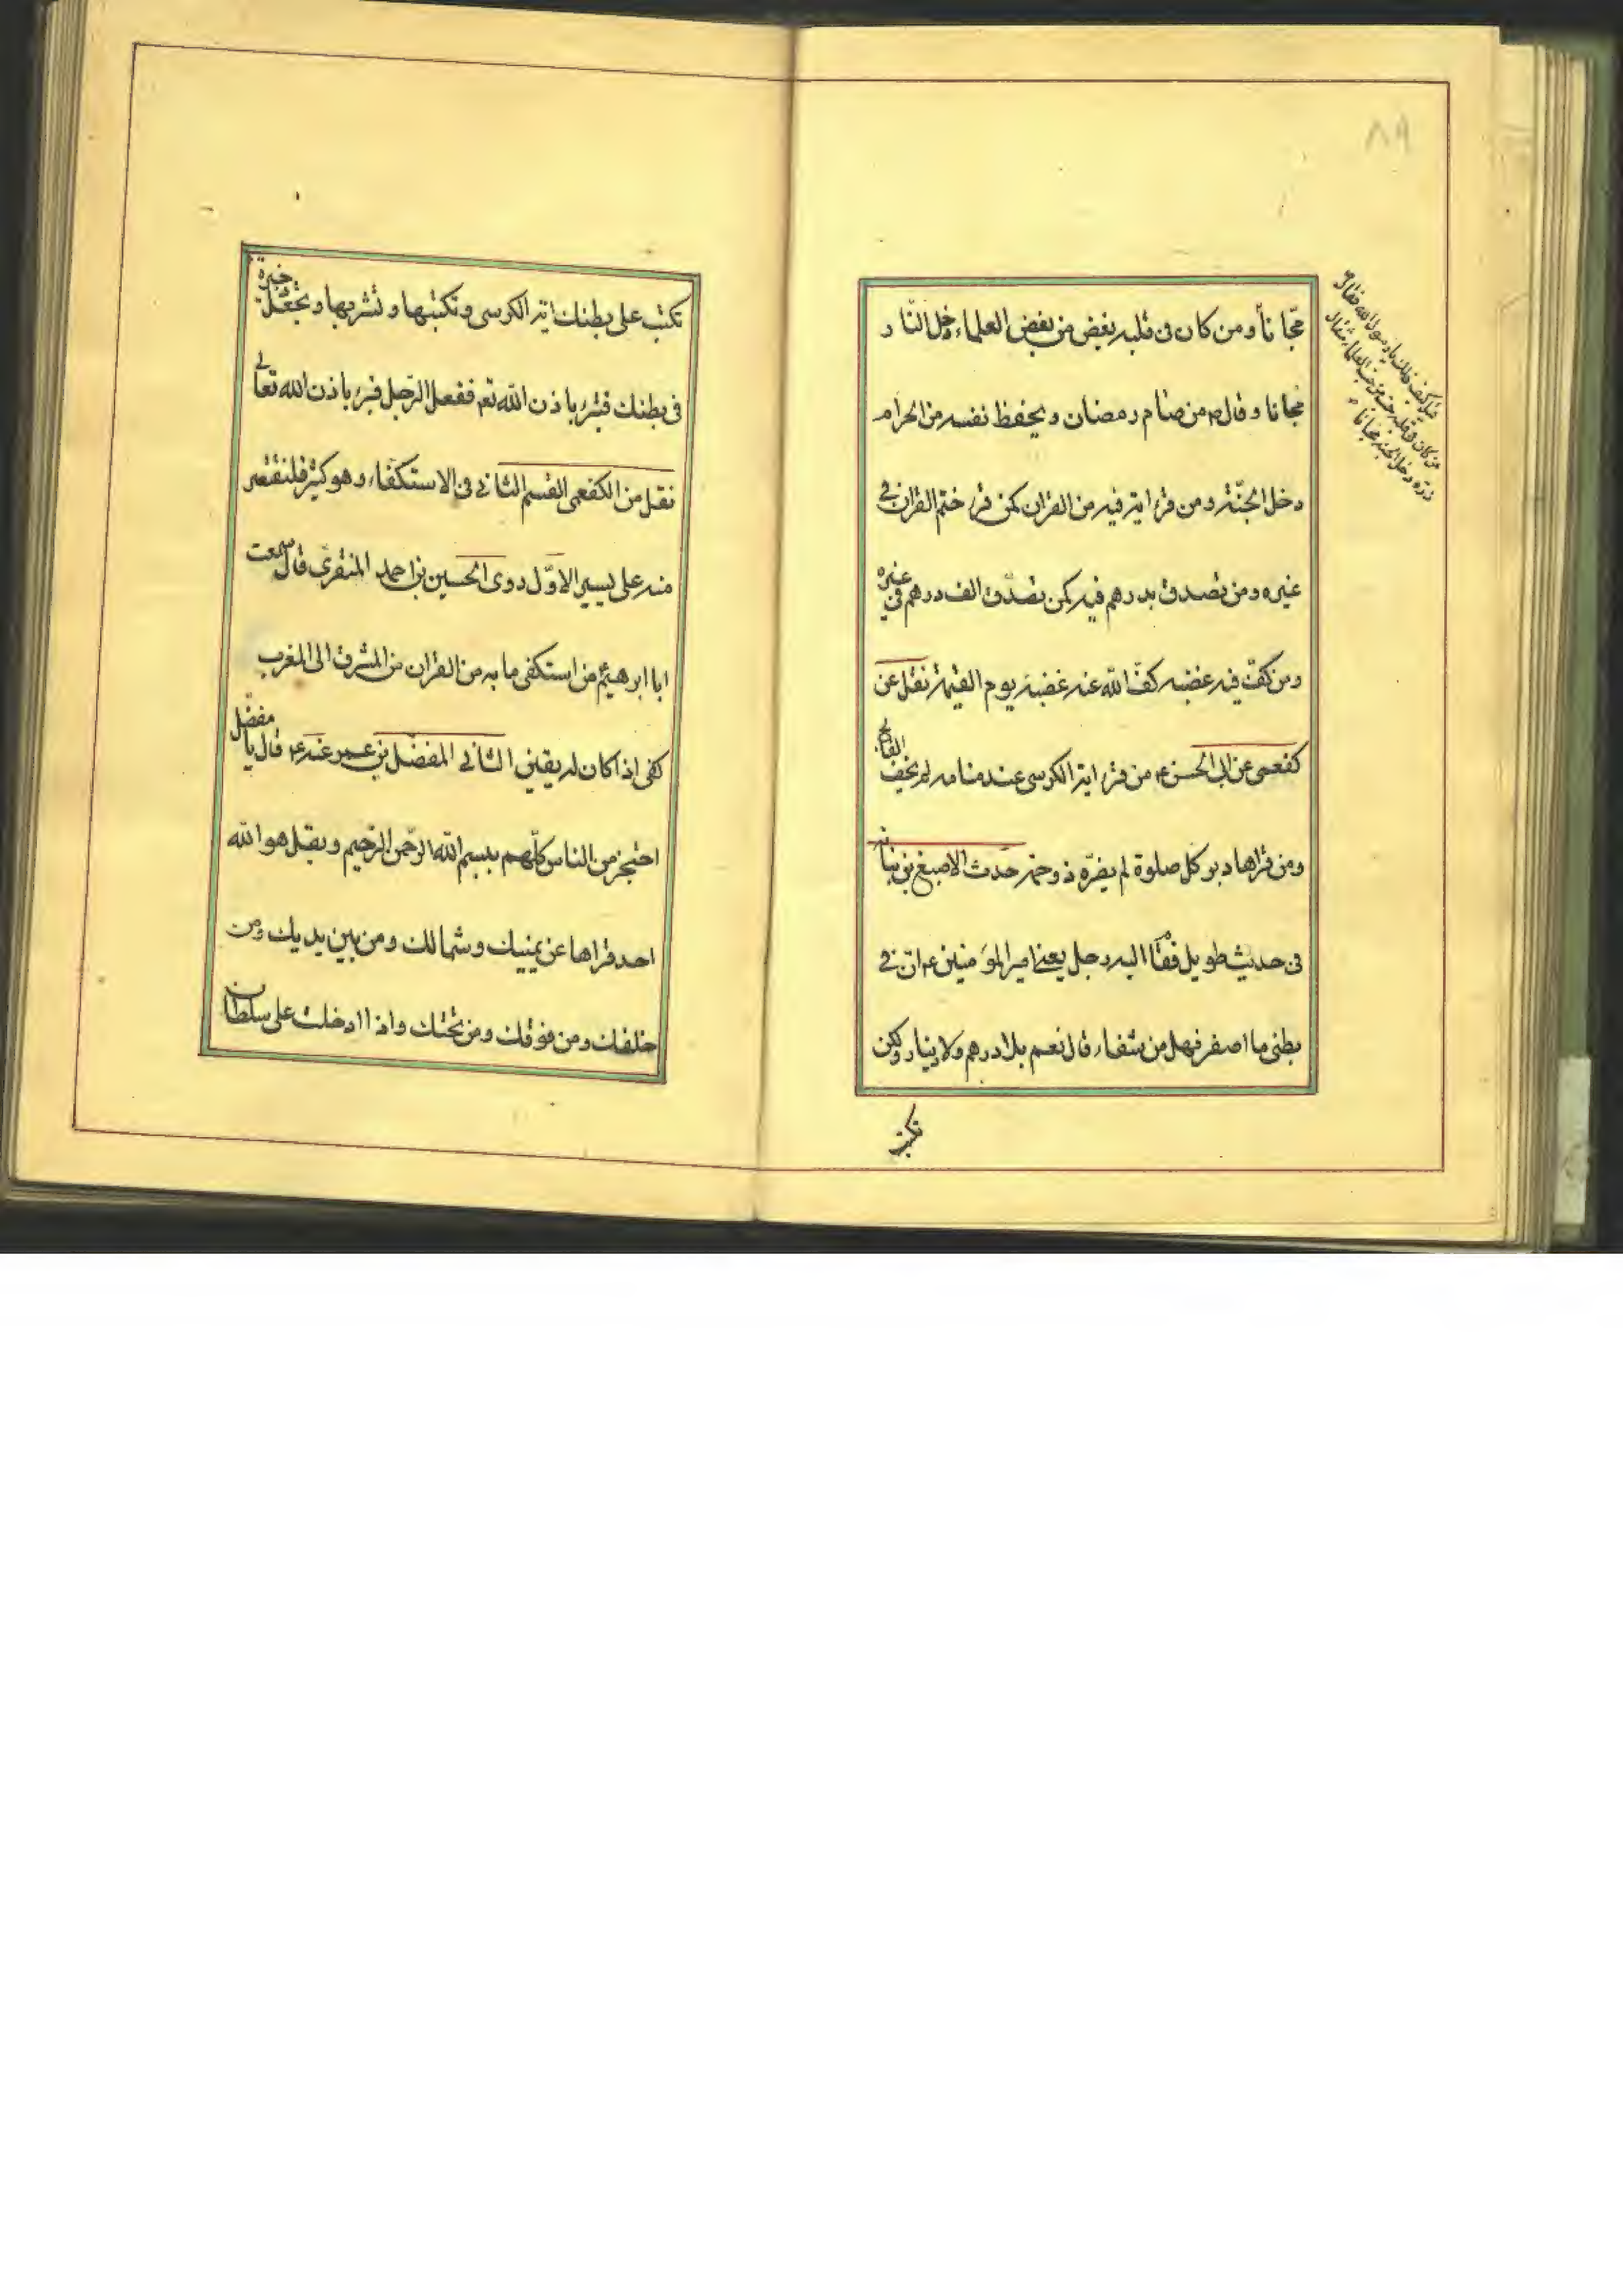 ٨٩
قيل كيف ذلك يا رسول الله فقال
من كان في قلبه من حب العلماء مثقال
ذرة دخل الجنة مجانا
مجّاناً و من كان فى قلبه بغض من بغض العلماء دخل النّار
مجانا و قال ص من صام رمضان و يحفظ نفسه من الحرام
دخل الجنّة و من قرء اية فيه من القران كمن قرء ختم القران فى
غيره و من تصدق بدرهم فيه كمن تصدّق الف درهم فى غيره
و من كفّ فيه غضبه كفّ الله عنه غضبه يوم القيمة نقل عن
كفعمى عن ابى الحسن ع من قرء اية الكرسى عند منامه لم يخف الفالج
و من قراها دبر كل صلوة لم يضرّه ذو حمة حدث الاصبغ بن نباته
فى حديث طويل فقام اليه رجل يعنى امير المؤمنين ع ان فى
بطنى ما اصفر فهل من شفاء قال نعم بلا درهم ولا دينار ولكن
تكتب
تكتب على بطنك اية الكرسى و تكتبها و تشربها و تجعلها ذخيرة
فى بطنك فتبرء باذن الله تعم ففعل الرّجل فبرء باذن الله تعالى
نقل من الكفعمى القسم الثانى فى الاستكفاء و هو كثير فلنقتصر
منه على يسير الاوّل روى الحسين بن احمد المنقرى قال سمعت
ابا ابرهيم ع من استكفى مابه من القران من المشرق الى المغرب
كفى اذا كان له يقين الثانى المفضل بن عمر عنه ع قال يا مفضل
احتجز من الناس كلّهم ببسم الله الرّحمن الرّحيم و بقل هو الله
احد قراها عن يمينك و شمالك و من بين يديك و من
خلفك و من فوقك و من تحتك و اذا ادخلت على سلطان